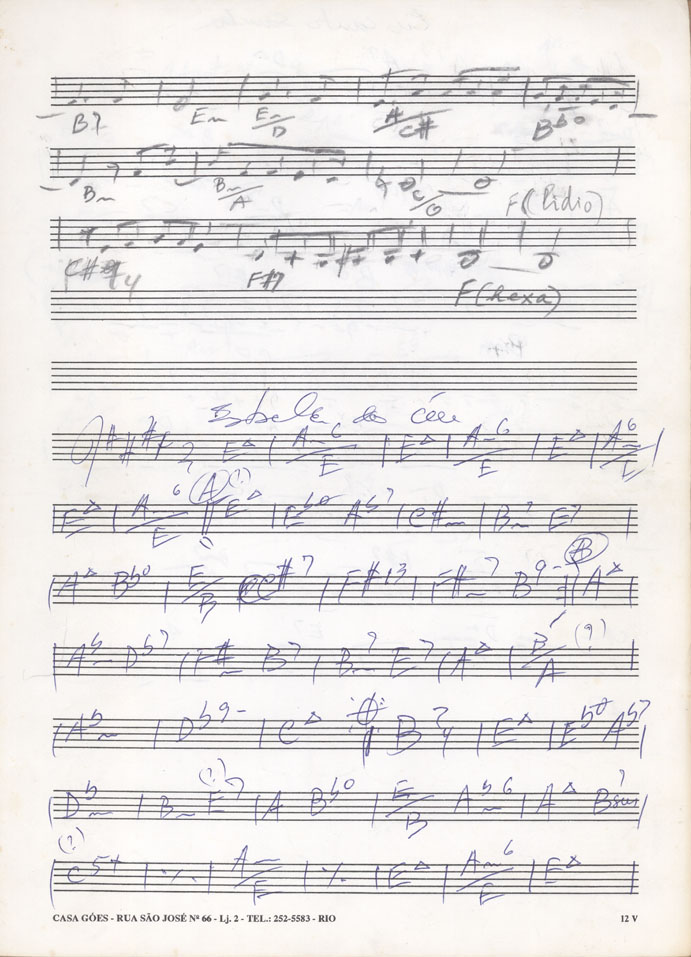 B7 Em Em/D A/C# Bb0
Bm Bm/A C/G F(lídio)
C#74 F#7 F(hexa)
Estrela do céu
EΔ | Am6/E | EΔ | Am6/E | EΔ | Am6/E
EΔ | Am6/E (A) (?) EΔ | Ebø Ab7 | C#m | Bm7 E7
AΔ Bb0 | E/B C#7 | F#13 | F#m7 B9- (B) AΔ
Abm Db7 | F#m B7 | Bm7 E7 | AΔ | B/A (?)
Abm | Db9- | CΔ B74 | EΔ | Ebø Ab7
(?)
Dbm | Bm E7 | A Bb0 | E/B Abm6 | AΔ B7sus
(?)
C5+ | ٪ | Am/E | ٪ | EΔ | Am6/E | EΔ
CASA GÓES - RUA SÃO JOSÉ Nº 66 - Lj. 2 - TEL.: 252-5583 - RIO 12 V